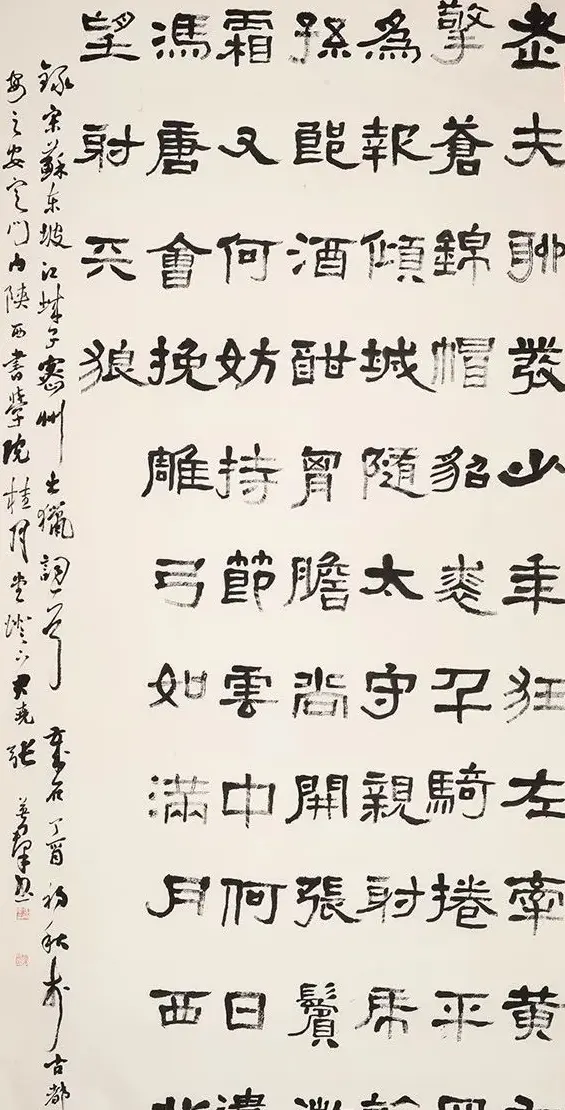 老夫聊發少年狂左牽黃右
擎蒼錦帽貂裘千騎捲平岡
為報傾城隨太守親射虎
孫郎酒酣胷膽尚開張鬢微
霜又何妨持節雲中何日遣
馮唐會挽雕弓如滿月西北
望射天狼
錄宋蘇東坡江城子密州出獵詞一首 歲在丁酉初秋於古都
西安之安定門內陝西書學院桂月堂燈下 張